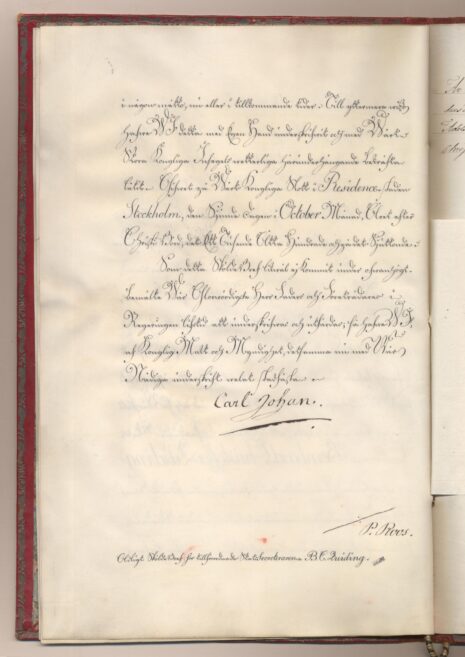 i någon måtto, nu eller i tillkommande tider. Till yttermera visso
hafve Wi detta med Egen Hand underskrifvit och med Wårt
Stora Kongliga Insegel vetterligen härunder hängande bekräfta
låtit. Skedt på Wårt Kongliga Slott i Residence Staden
Stockholm, den Sjunde dagen i October Månad, Året efter
Christi börd, det Ett Tusende Åtta Hundrade och
Som detta Sköldebref likväl ej kommit under
Wår Herr Faders och Företrädares i
Regeringen lifstid att underskrifvas och utfärdas; så hafve Wi
af Konglig Makt och Myndighet, detsamma nu med Wår
Nådiga underskrift velat stadfästa
Carl Johan.
P. Roos.
Sköldebref för B. C. Quiding.